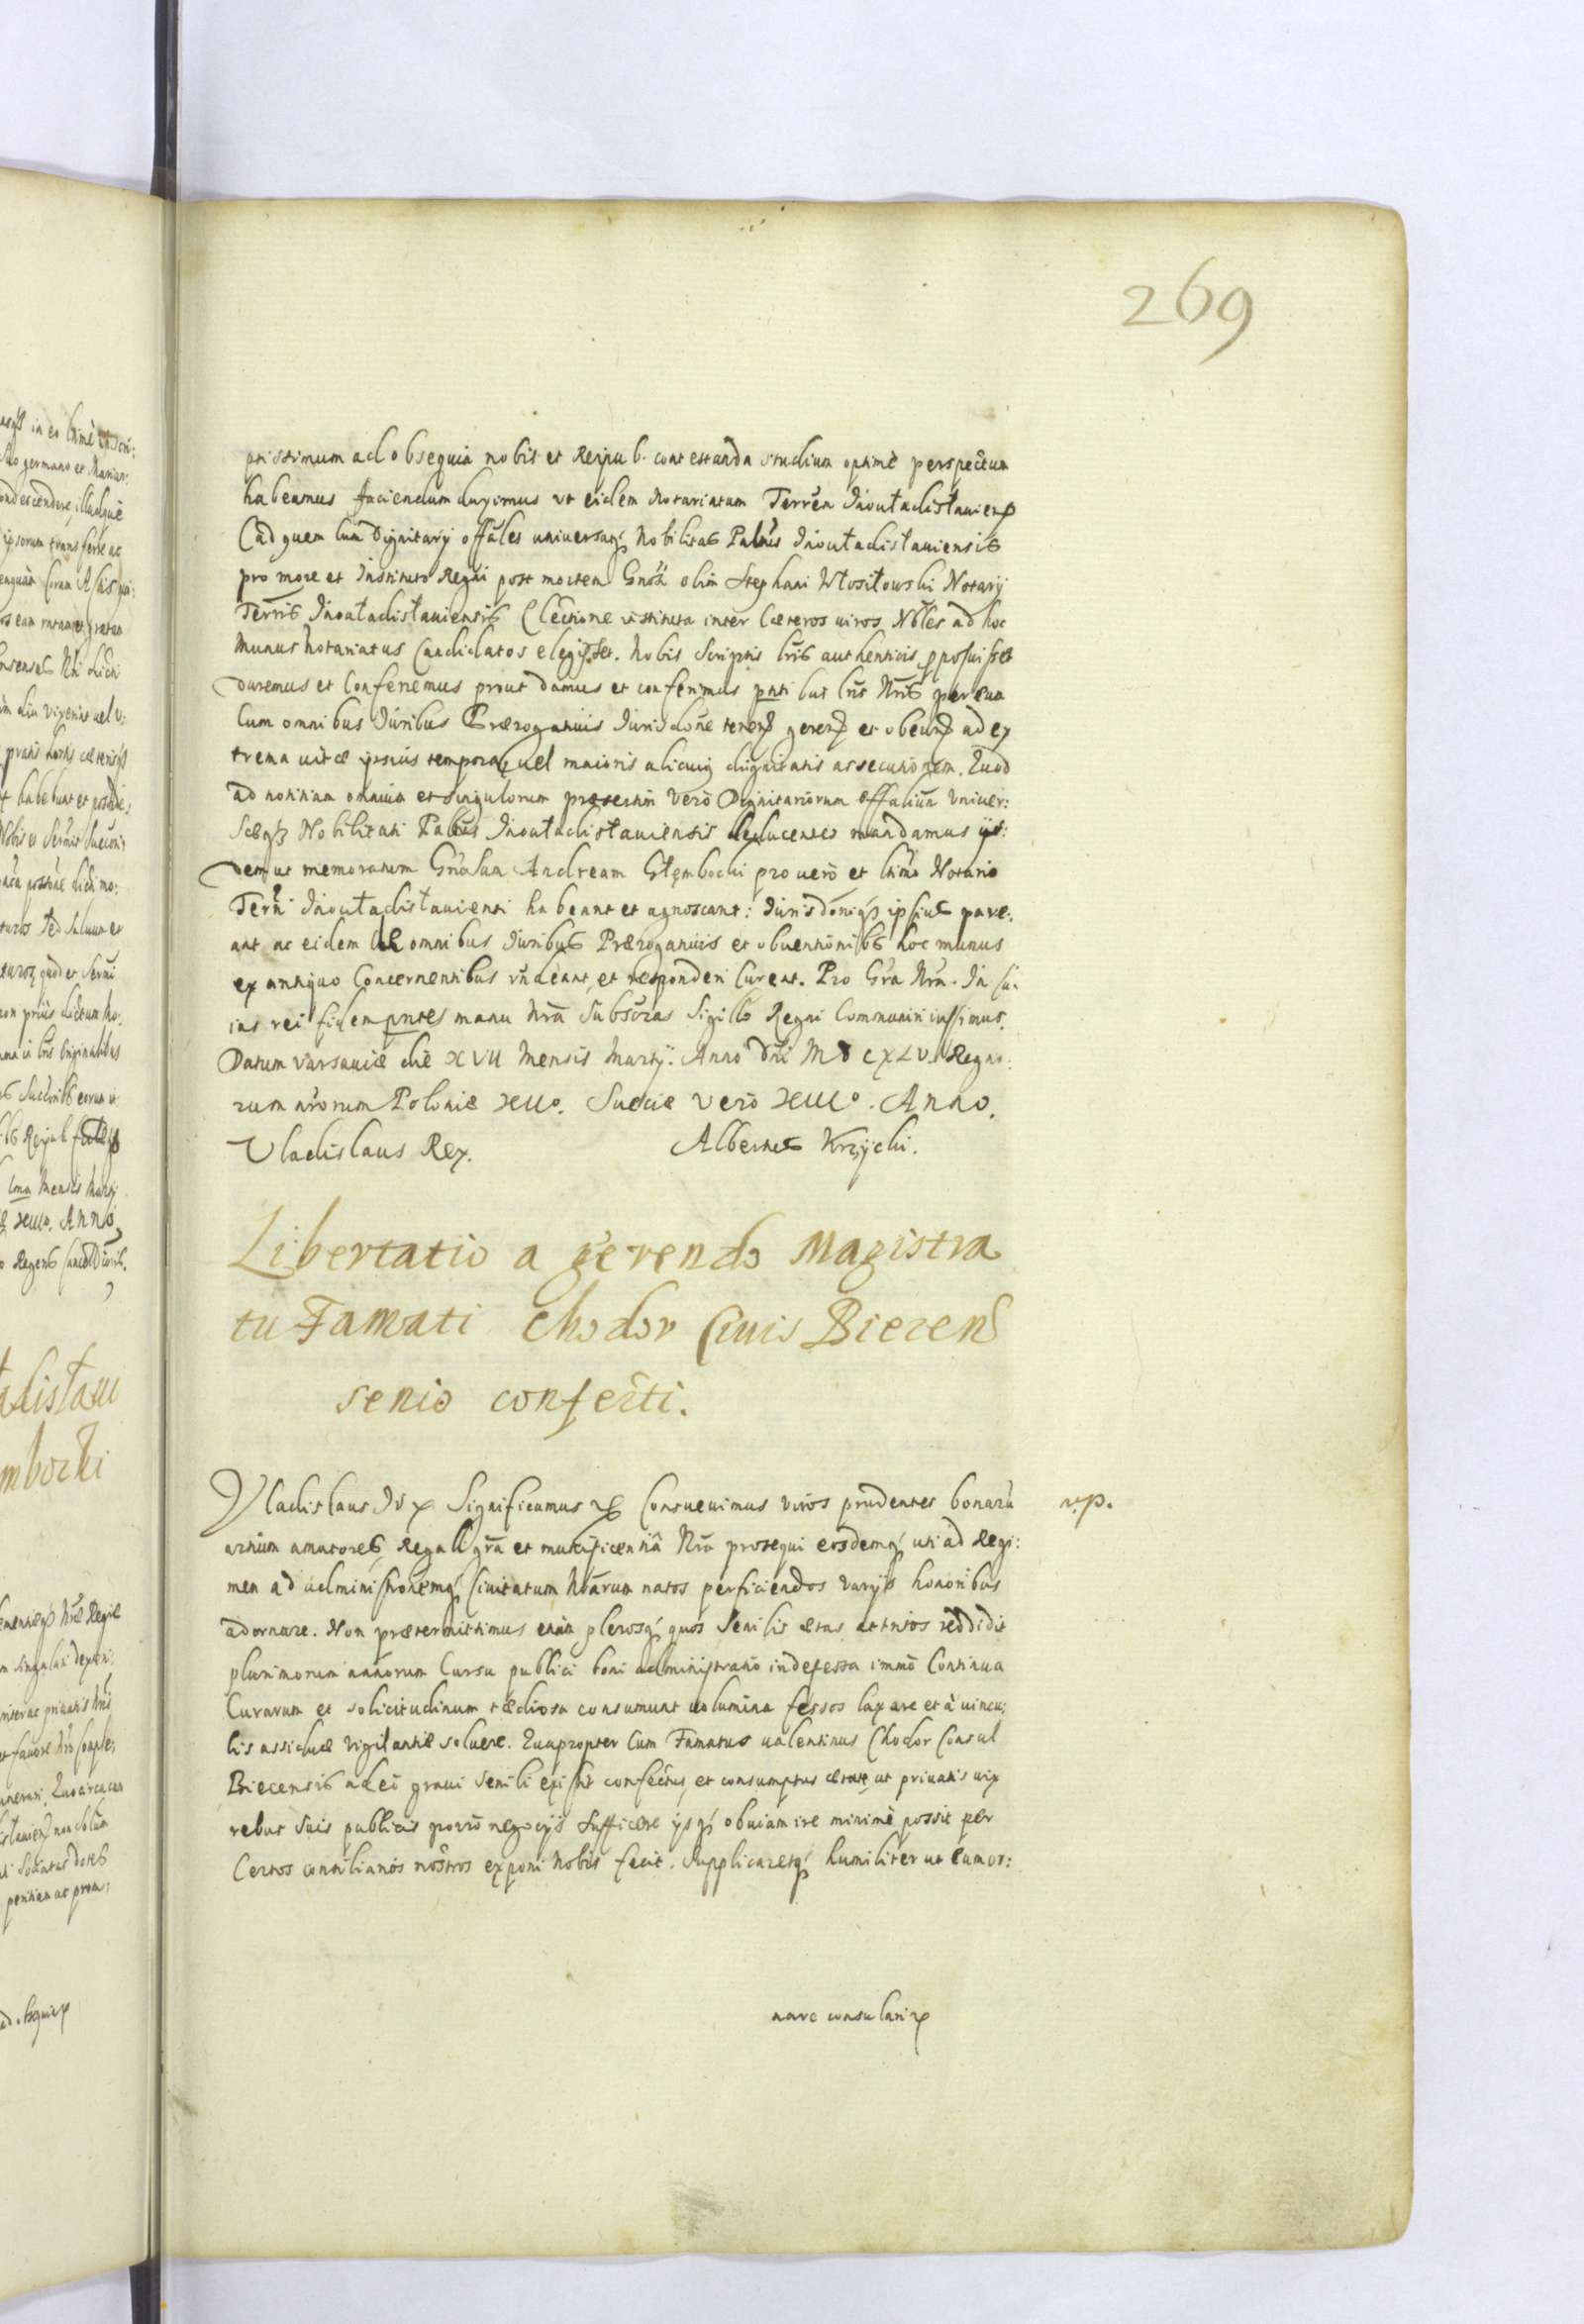 269
ptissimum ad obsequia nobis et Reipub. contestanda studium optimè perspectum
habeamus faciendum duximus vt eidem Notariatum Terrēn Jnouladislauiens
Cad quem cum Dignitarij offāles uniuersaq̃ Nobilitas Palnūs Jnouladislauiensis
pro more et Jnstituto Regni post mortem Gnōsi olim Stephani Wlositowski Notarij
Terrīs Jnouladislauiensis Electione instituta inter Cæteros uiros Nōbles ad hoc
Munus Notariatus Candidatos elegisset. Nobis Scriptis lrīs authenticis pposuisset
daremus et Conferemus prout damus et conferimus pnti bus lrīs Nrīs per eum
Cum omnibus Juribus Prærogatiuis Jurisdōne tenen geren et obeun ad ex
trema uitæ ipsius tempora, uel maioris alicuiq dignitatis assecutionem. Quod
ad notitiam omnium et singulorum præsertim Verò Dignitariorum offalium Vniuer:
sæq Nobilitati Palnūs Jnouladislauiensis deducentes mandamus ijs:
dem ut memoratum Gnōsum Andream Głembocki pro uero et ltimo Notario
Terri Jnouladislauiensi habeant et agnoscant: Jurisdōniq ipsius pare:
ant, ac eidem de omnibus Juribus Prærogatiuis et obuentionibs hoc munus
ex antiquo Concernentibus rndeant, et responderi Curent. Pro Gra Nra. In cu:
ius rei fidem pntes manu Nrā Subscras Sigillo Regni Communiri iussimus.
Datum Varsauiæ die XVII Mensis Martij. Anno Dni MDCXLV. Regno:
rum nrōrum Poloniæ XIIIo. Sueciæ Verò XIIIo. Anno.
Vladislaus Rex. Albertus Krzycki.
Libertatio a gerendo Magistra
tu Famati Chodor Ciuis Biecens
senio confecti.
Vladislaus IV Significamus Consueuimus viros prudentes bonarū
artium amatores, Regali grā et munificentiâ Nrā prosequi eosdemq̃ uti ad Regi:
men ad administronemq̃ Ciuitatum Nrārum natos perficiendos Varijs honoribus
adornare. Non prætermittimus etiam plerosq̃ quos Senilis ætas attritos reddidit
plurimorum annorum Cursu publici boni administratio indefessa immò Continua
Curarum et solicitudinum tædiosa consumunt uolumina fessos laxare et à uincu:
lis assiduæ Vigilantiæ soluere. Quapropter Cum Famatus ualentinus Chodor Consul
Biecensis adeò graui Senili exisft confectus, et consumptus ætate, ut priuatis uix
rebus suis publicis porrò negocijs Sufficere ijsq̃ obuiam ire minimè possit per
Certos consiliarios nostros exponi Nobis fecit. Supplicaretq̃ humiliter ut eum or:
nare consulari